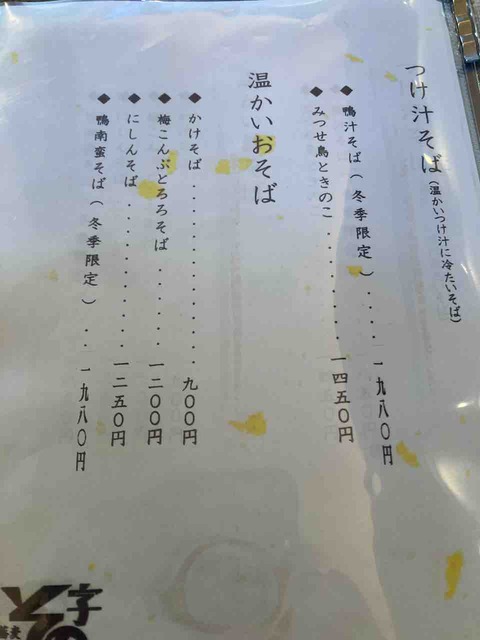 つけ汁そば(温かいつけ汁に冷たいそば)
◆鴨汁そば(冬季限定)・・・・一九八〇円
◆みつせ鳥ときのこ・・・・・・・・一四五〇円
温かいおそば
◆かけそば・・・・・・・・・・・・・九〇〇円
◆梅こんぶとろろそば・・・・・・一二〇〇円
◆にしんそば・・・・・・・・・・一二五〇円
◆鴨南蛮そば(冬季限定)・・一九八〇円
蕎麦